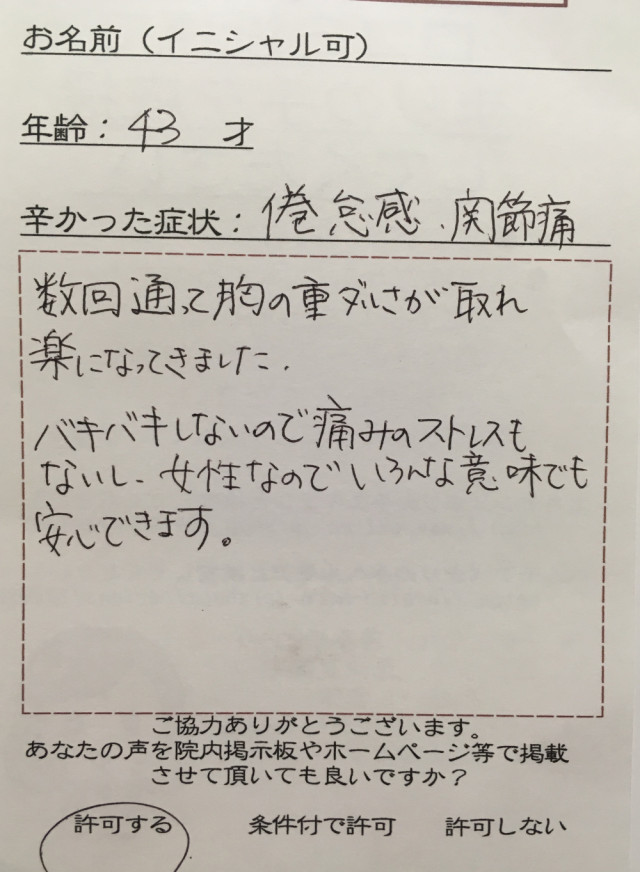 お名前（イニシャル可）
年齢：43 才
辛かった症状：倦怠感、関節痛
数回通って胸の重ダルさが取れ
楽になってきました.
バキバキしないので痛みのストレスも
ないし、女性なのでいろんな意味でも
安心できます。
ご協力ありがとうございます。
あなたの声を院内掲示板やホームページ等で掲載
させて頂いても良いですか？
許可する 条件付で許可 許可しない